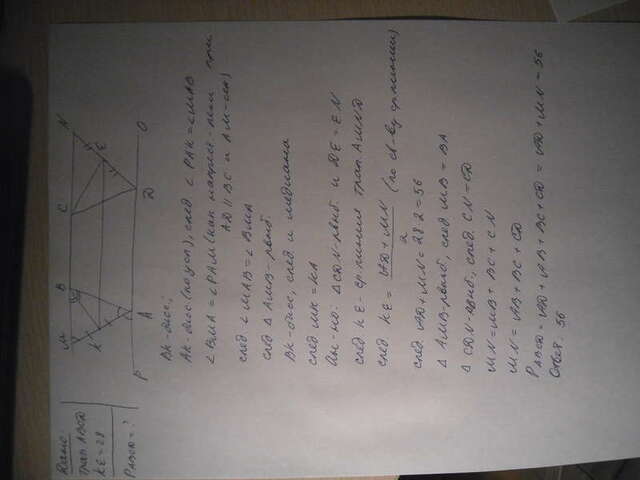 Дано:
трап. ABCD
KE = 28
P ABCD = ?
M B C N
K E
P A D O
BK - бисс.
AK - бисс (по усл), след ∠PAK = ∠MAB
∠BMA = ∠PAM (как накрест леж. при
AD || BC и AM - сек)
след ∠MAB = ∠BMA
след △AMB - рвнб.
BK - бисс, след и медиана
след MK = KA
Ан-но: △CDN - рвнб. и DE = EN
след KE - ср линия трап. AMND
след KE = AD + MN / 2 (по св-ву ср линии)
след. AD + MN = 28·2 = 56
△AMB - рвнб, след MB = BA
△CDN - рвнб, след. CN = CD
MN = MB + BC + CN
MN = AB + BC + CD
P ABCD = AD + AB + BC + CD = AD + MN = 56
Ответ. 56